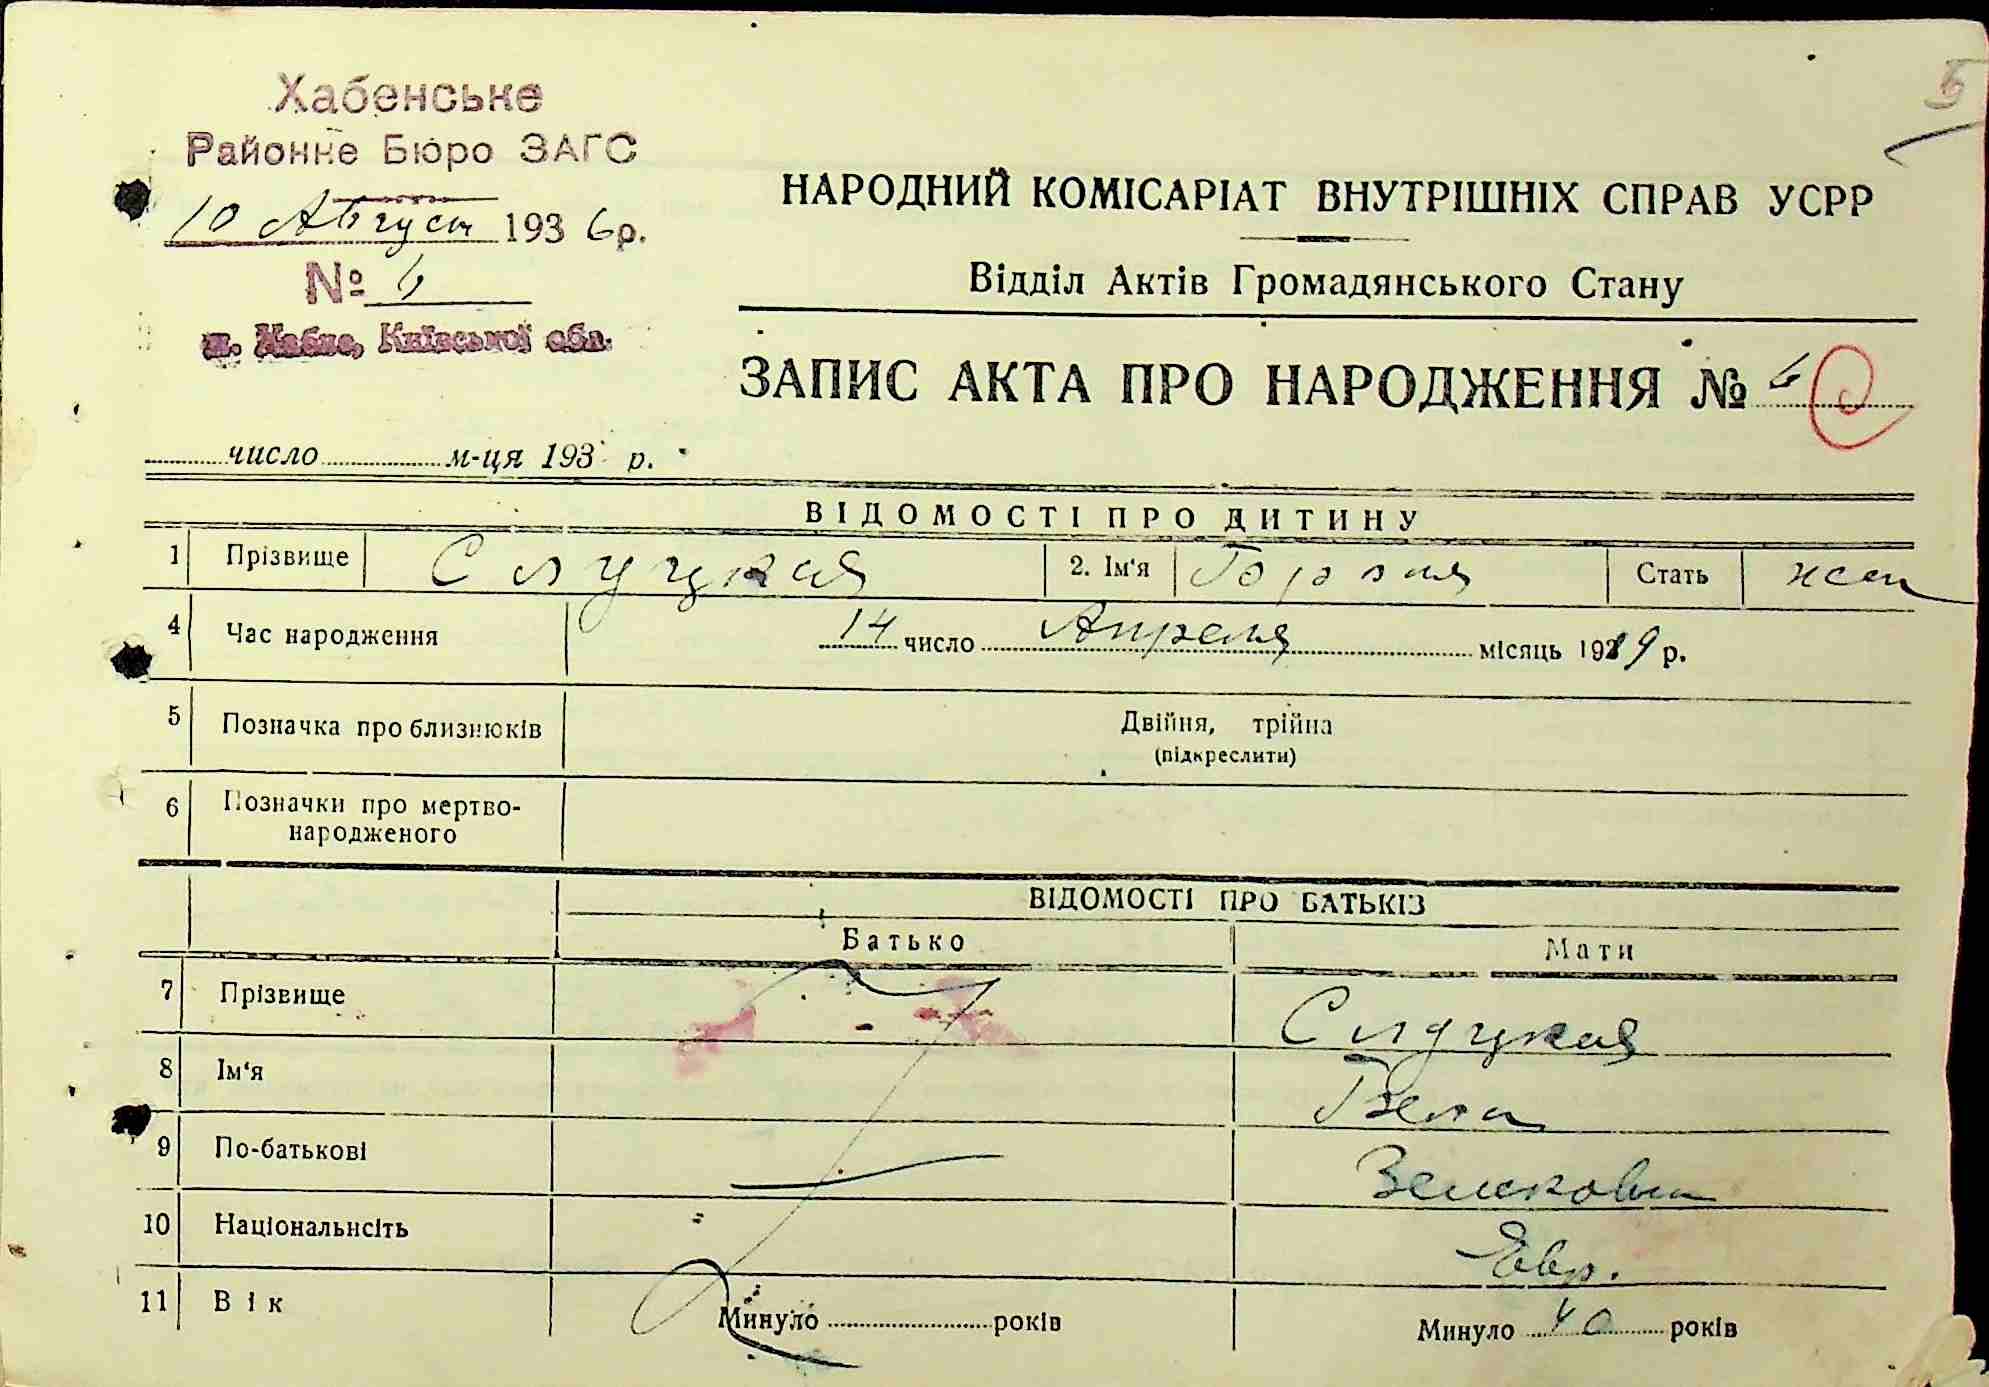 Хабенське
Районне Бюро ЗАГС
10 Август 1936 р.
№ 6
м. Хабне, Київської обл.
НАРОДНИЙ КОМІСАРІАТ ВНУТРІШНІХ СПРАВ УСРР
Відділ Актів Громадянського Стану
ЗАПИС АКТА ПРО НАРОДЖЕННЯ № 6
число м-ця 193 р.
ВІДОМОСТІ ПРО ДИТИНУ
1 Прізвище Слуцкая 2. Ім'я Стать жен
4 Час народження 14 число Апреля місяць 1919 р.
5 Позначка про близнюків Двійня, трійна
(підкреслити)
6 Позначки про мертво-
народженого
ВІДОМОСТІ ПРО БАТЬКІВ
Батько Мати
7 Прізвище Слуцкая
8 Ім'я Бела
9 По-батькові
10 Національнсіть Евр.
11 Вік Минуло років Минуло 40 років